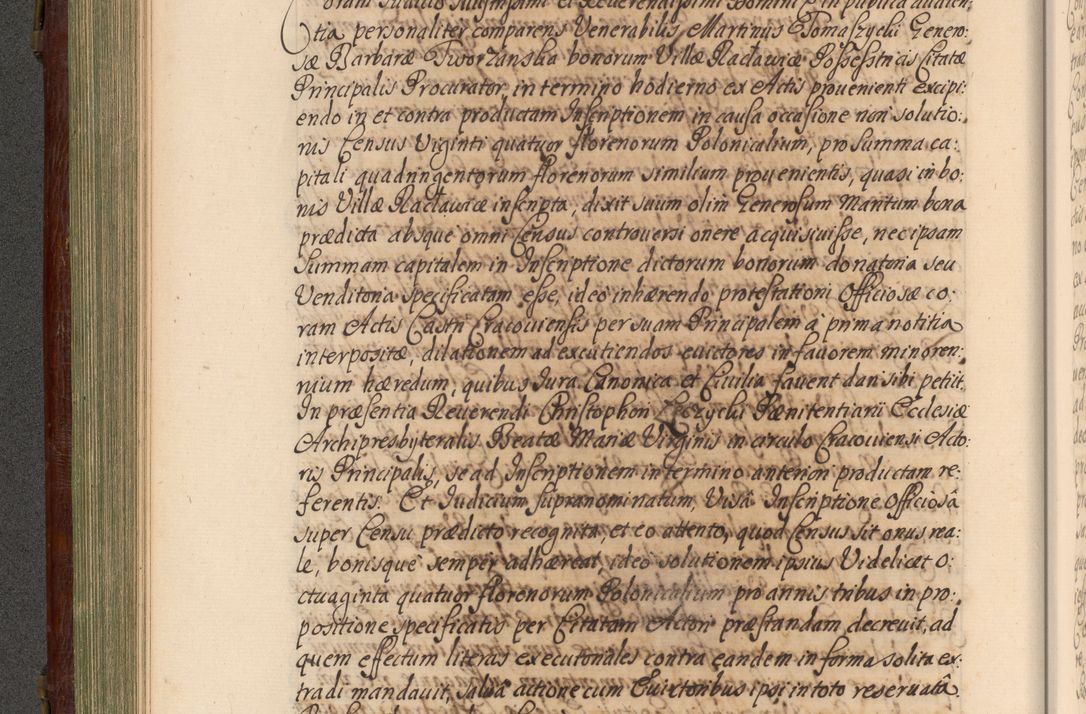 oram Judicio Illustrissimi et Reverendissimi Domini in publica audien:
tia personaliter comparens Venerabilis Martinus Tomaszycki Genero:
sæ Barbaræ Tworzanska bonorum Villæ Racławicæ Possessricis Citatæ
Principalis Procurator, in termino hodierno ex Actis prouenienti excipi:
endo in et contra productam Inscriptionem in causa occasione non solutio:
nis Census Viginti quatuor florenorum Polonicalium, pro summa ca:
pitali quadringentorum florenorum similium prouenientis, quasi in bo:
nis Villæ Racławicæ inscripta, dixit suum olim Generosum Maritum bona
prædicta absque omni Census controversi onere acquisiuisse, nec ipsam
Summam capitalem in Inscriptione dictorum bonorum donatoria seu
Venditoria specificatam esse, ideo inhærendo protestationi Officiosæ co:
ram Actis Castri Cracouiensis per suam Principalem à prima notitia
interpositæ, dilationem ad excutiendos euictores in fauorem minoren:
nium hæredum, quibus Jura Canonica et Ciuilia fauent dari sibi petiit.
In præsentia Reuerendi Christophori Pænitentiarii Ecclesiæ
Archipresbyteralis Beatæ Mariæ Virginis in circulo Cracouiensi Acto:
ris Principalis, se ad Inscriptionem in termino anteriori productam re:
ferentis. Et Judicium supranominatum, Visâ Inscriptione Officiosâ
super Censu prædicto recognita, et eo attento, quod Census sit onus rea:
le, bonisque semper adhæreat, ideo solutionem ipsius Videlicet o:
ctuaginta quatuor florenorum Polonicalium pro annis tribus in pro:
positione specificatis per Citatam Actori præstandam decreuit, ad
quem effectum literas executoriales contra eandem in forma solita ex:
tradi mandauit, salvâ actione cum Euictoribus ipsi in toto reseruatâ